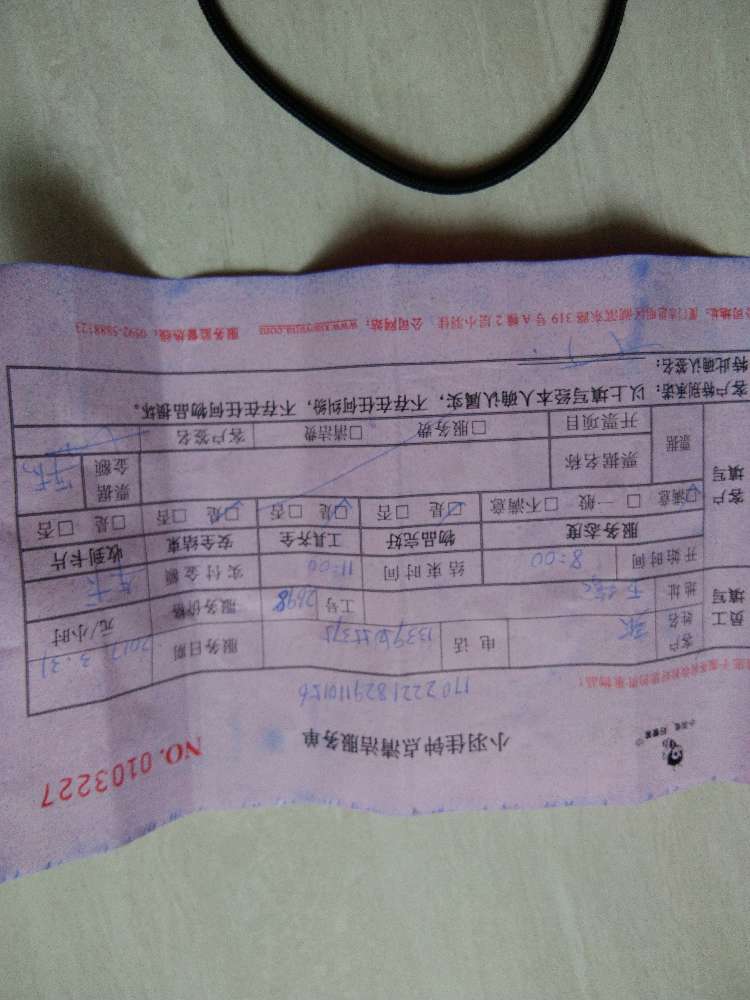 小羽佳钟点清洁服务单
NO. 0103227
1702221829110156
客户姓名 张 电话 服务日期 2017 3.31
员工填写
地址 工号 2698 服务价格 元/小时
开始时间 8:00 结束时间 11:00 实付金额 年卡
客户填写
服务态度 物品完好 工具齐全 安全结束 收到卡片
☑满意 □一般 □不满意 ☑是 □否 ☑是 □否 ☑是 □否 □是 □否
票据 票据名称 票据金额
开票项目 □服务费 □清洁费 客户签名
客户特别承诺：以上填写经本人确认属实，不存在任何纠纷，不存在任何物品损坏。
特此确认签名：
公司地址：厦门市思明区湖滨东路319号A幢2层小羽佳 公司网站：www.xiaoyujia.com 服务监督热线：0592-5888123